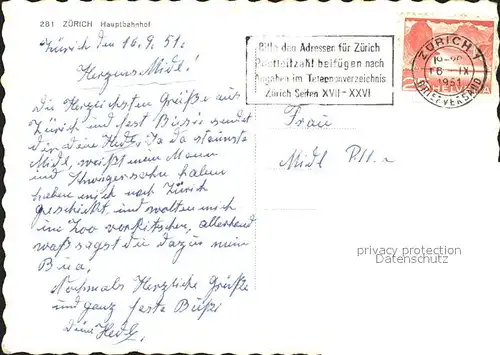 281 ZÜRICH Hauptbahnhof
Zürich den 16.9.51.
Herzens Midl!
Die Herzlichsten Grüße aus
Zürich und fest Bussi sendet
dir deine Hedl. Ja da staunste
Midl, weißt mein Mann
und Schwiegersohn haben
haben mich nach Zürich
geschickt, und wollten mich
im Zoo verkitschen, allerhand
waß sagst du dazu mein
Bua.
Nochmals Herzliche Grüße
und ganz feste Bußi
deine Hedl.
Bitte den Adressen für Zürich
Postleitzahl beifügen nach
Angaben im Telefonverzeichnis
Zürich Seiten XVII-XXVI
ZÜRICH 1
IX
1951
BRIEFVERSAND
Frau
Midl
privacy protection
Datenschutz